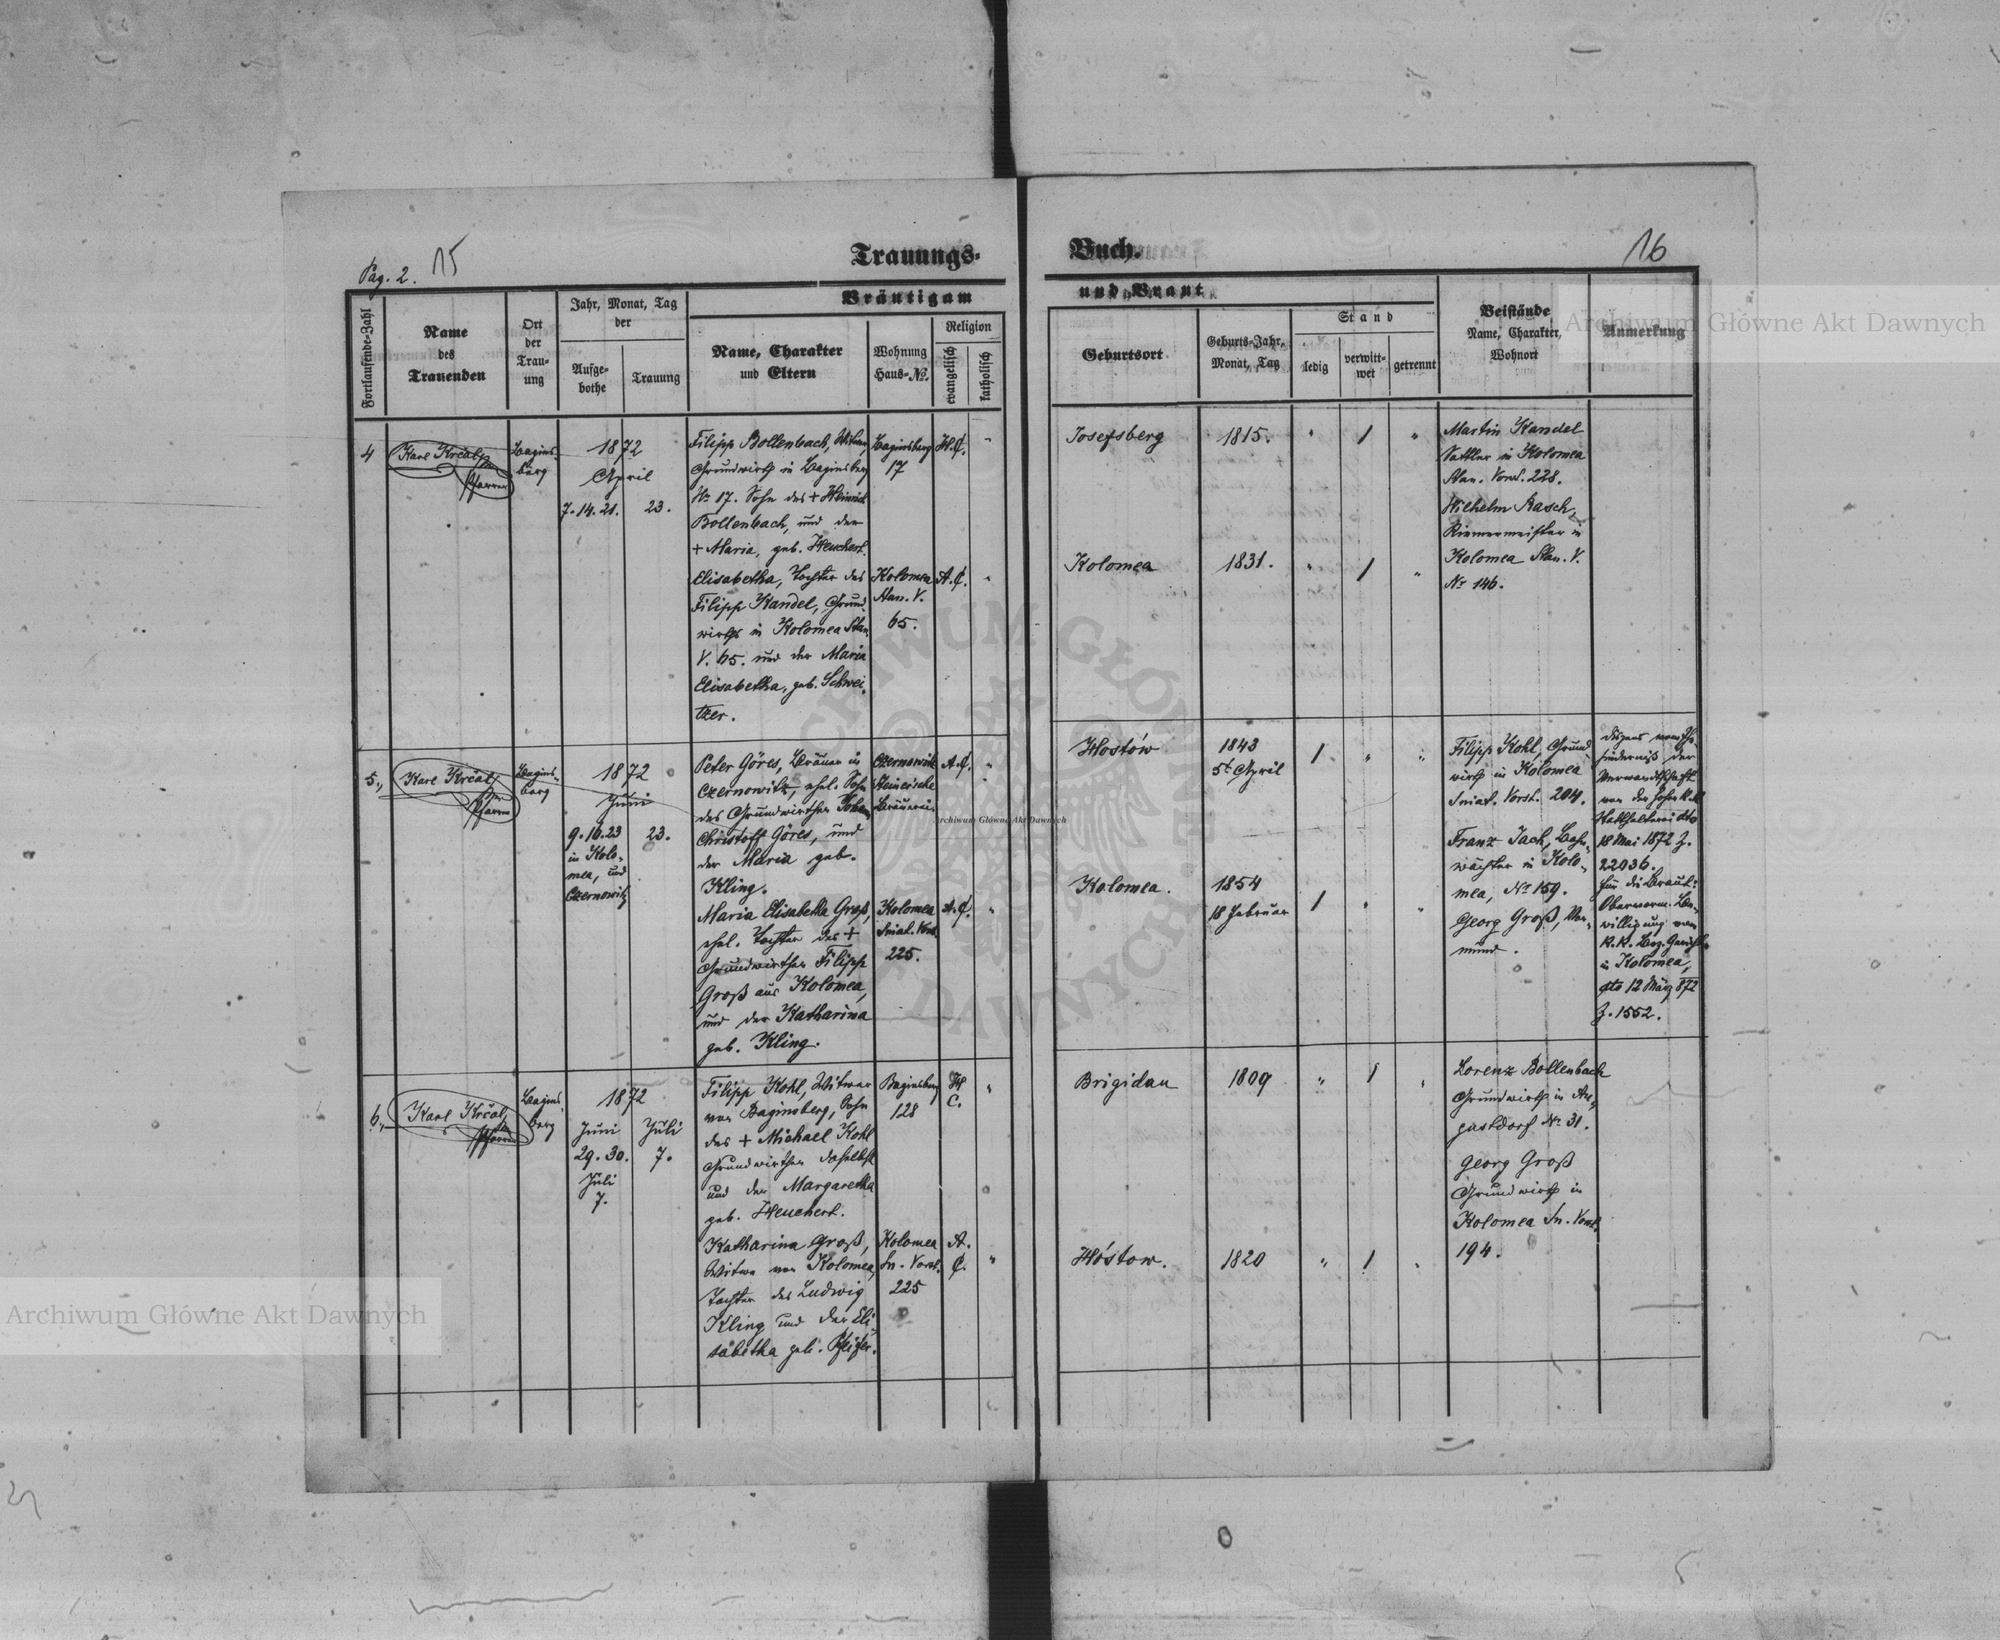 Pag. 2.
15
16
Trauungs-
Buch.
Fortlaufende-Zahl
Name
des
Trauenden
Ort
der
Trau-
ung
Jahr, Monat, Tag
der
Aufge-
bothe
Trauung
Bräutigam
und Braut
Name, Charakter
und Eltern
Wohnung
Haus-No.
Religion
evangelisch
katholisch
Geburtsort
Geburts-Jahr,
Monat, Tag
Stand
ledig
verwitt-
wet
getrennt
Beistände
Name, Charakter,
Wohnort
Anmerkung
4
Karl Krčal,
Pfarrer
Bagins-
berg
1872
April
7. 14. 21.
23.
Filipp Bollenbach, Witwer,
Grundwirth in Baginsberg
No 17. Sohn des + Heinrich
Bollenbach, und der
+ Maria, geb. Heuchert.
Baginsberg
17
H. C.
"
Josefsberg
1815.
"
1
"
Martin Kandel
Sattler in Kolomea
Stan. Vorst. 228.
Wilhelm Rasch,
Riemermeister in
Kolomea Stan. V.
No 146.
Elisabetha, Tochter des
Filipp Kandel, Grund-
wirths in Kolomea Stan.
V. 65. und der Maria
Elisabetha, geb. Schwei-
tzer.
Kolomea
Stan. V.
65.
A. C.
"
Kolomea
1831.
"
1
"
5.,
Karl Krčal,
Pfarrer
Bagins-
berg
1872
Juni
9. 16. 23
in Kolo-
mea, und
Czernowitz
23.
Peter Göres, Bräuer in
Czernowitz, ehel. Sohn
des Grundwirthes Johann
Christoff Göres, und
der Maria geb.
Kling.
Czernowitz
Steiner'sche
Bräuerei.
A. C.
"
Hostów
1843
5t April
1
"
"
Filipp Kohl, Grund-
wirth in Kolomea
Sniat. Vorst. 204.
Franz Jach, Bahn-
wächter in Kolo-
mea, No 159.
Georg Groß, Vor-
mund.
Dispens vom Hi-
nderniß der
Verwandtschaft
von der hohen k. k.
Statthalterei dto
18 Mai 1872 Z.
22036.
Für die Braut:
Obervorm. Be-
willigung vom
k. k. Bez. Gericht
in Kolomea,
dto 12 März 872
Z. 1552.
Maria Elisabetha Groß,
ehel. Tochter des +
Grundwirthes Filipp
Groß aus Kolomea,
und der Katharina
geb. Kling.
Kolomea
Sniat. Vorst.
225.
A. C.
"
Kolomea.
1854
18 Februar
1
"
"
6.,
Karl Krčal,
Pfarrer
Bagins-
berg
1872
Juni
29. 30.
Juli
7.
Juli
7.
Filipp Kohl, Witwer
von Baginsberg, Sohn
des + Michael Kohl
Grundwirthes daselbst
und der Margaretha
geb. Heuchert.
Baginsberg
128
H.
C.
"
Brigidau
1809
"
1
"
Lorenz Bollenbach
Grundwirth in Au-
gustdorf No 31.
Georg Groß
Grundwirth in
Kolomea Sn. Vorst.
194.
Katharina Groß,
Witwe von Kolomea,
Tochter des Ludwig
Kling und der Eli-
sabetha geb. Pfeifer.
Kolomea
Sn. Vorst.
225
A.
C.
"
Hostow.
1820
"
1
"
Archiwum Główne Akt Dawnych
Archiwum Główne Akt Dawnych
Archiwum Główne Akt Dawnych
ARCHIWUM GŁÓWNE AKT DAWNYCH